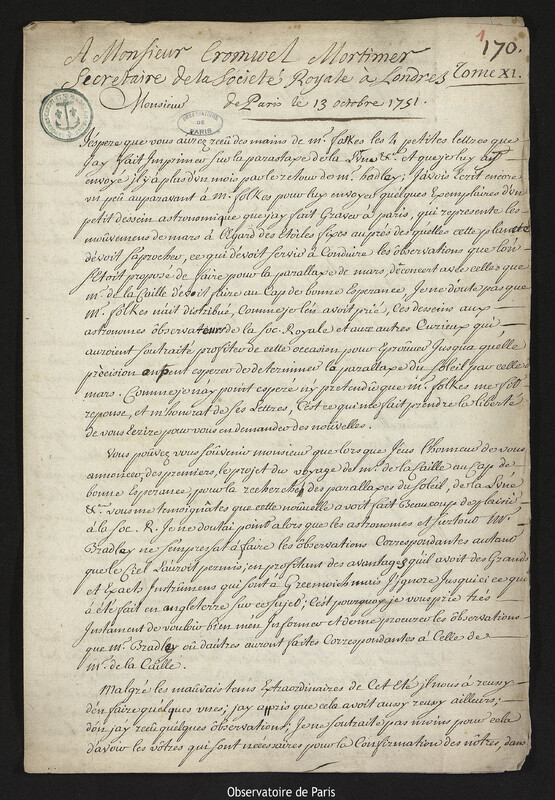 A Monsieur Cromwel Mortimer
Secretaire de la Societé Royale à Londres
1
170.
Tome XI.
Monsieur
de Paris le 13 octobre 1751.
OBSERVATOIRE
DE
PARIS
J'espere que vous aurez recû des mains de mr. folkes les 4 petites lettres que
jay fait Imprimer sur la parallaxe de la Lune &c. Et que je luy ay
envoyé il y a plus d'un mois par le retour de mr. hadley; J'avois Ecrit encore
un peu auparavant à mr. folkes pour luy envoyer quelques Exemplaires d'un
petit dessein astronomique que jay fait Graver à paris, qui represente les
moûvemens de mars à l'égard des Etoiles fixes auprès des quelles cette planete
devoit s'aprocher, ce qui devoit servir à Conduire les observations que l'on
s'Etoit proposé de faire pour la parallaxe de mars, de concert avec celles que
mr. de la Caille devoit faire au Cap de bonne Esperance, Je ne doute pas que
mr. folkes n'ait distribué, Comme je l'en avois prié, Ces desseins aux
astronomes observateurs de la Soc. Royale et aux autres Curieux qui
auroient souhaité profiter de cette occasion pour Eprouver Jusqu'a quelle
précision on peut esperer de determiner la parallaxe du Soleil par celle de
mars. Comme je n'ay point esperé ny pretendu que mr. folkes me fit
reponse, et m'honnorat de ses Lettres, C'est ce qui me fait prendre la liberté
de vous Ecrire pour vous en demander des nouvelles.
Vous pouvez vous souvenir monsieur que lors que J'eus l'honneur de vous
annoncer des premiers, le projet du voyage de mr. de la Caille au Cap de
bonne Esperance, pour la recherche des parallaxes du Soleil, de la Lune
&c. vous me temoignates que cette nouvelle avoit fait beaucoup de plaisir
à la Soc. R. Je ne doutai point alors que les astronomes et surtout Mr.
Bradley ne s'empressat à faire les observations Correspondantes autant
que le Ciel l'auroit permis; en profitant des avantages qu'il avoit des Grands
et Exacts Instrumens qui sont à Greenwich mais J'ignore Jusqu'ici ce qui
à été fait en angleterre sur ce sujet; C'est pourquoy je vous prie trés
Instament de vouloir bien m'en Informer et de me procurer les observations
que mr. Bradley ou d'autres auront faites Correspondantes à Celle de
mr. de la Caille.
Malgré les mauvais tems Extraordinaires de Cet Eté, il nous à reussy
d'en faire quelques unes; jay appris que cela avoit aussy reussy ailleurs;
d'ou jay recû quelques observations; Je ne souhaite pas moins pour cela
d'avoir les vôtres qui sont necessaires pour la Confirmation des nôtres, dans
Observatoire de Paris